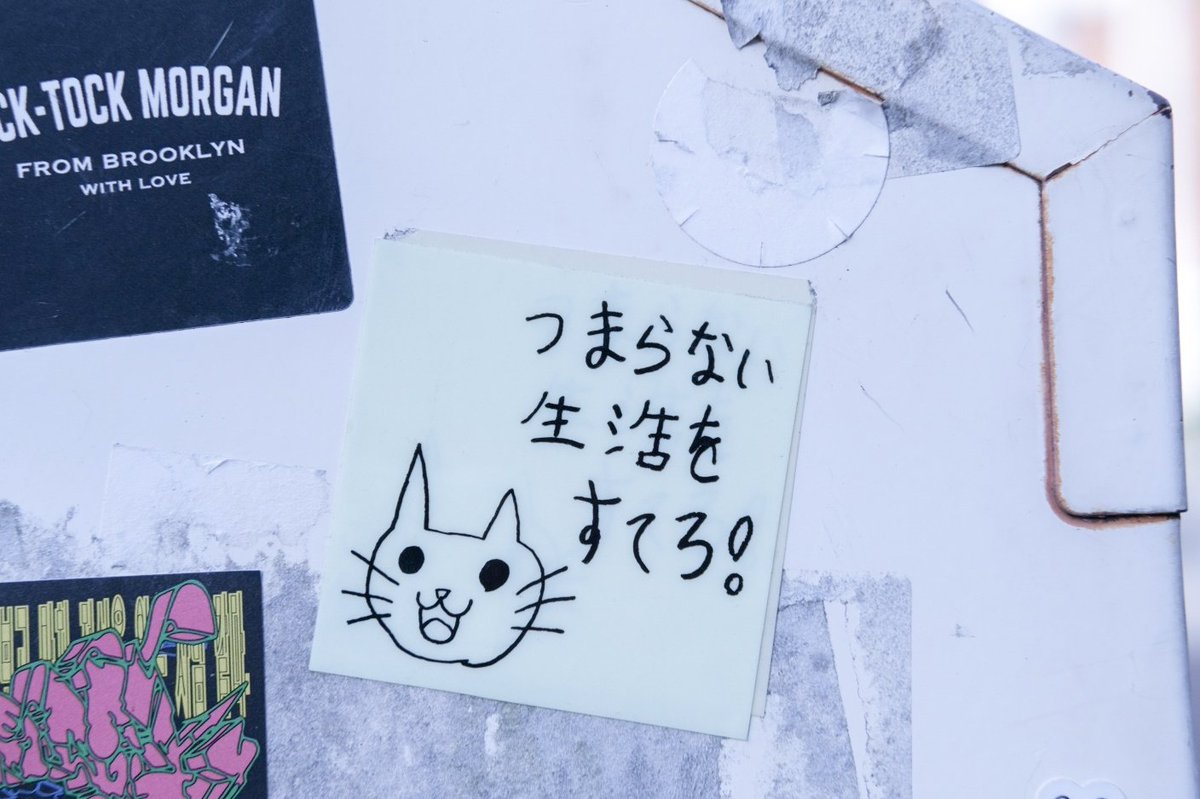 CK-TOCK MORGAN
FROM BROOKLYN
WITH LOVE
つまらない
生活を
すてろ!